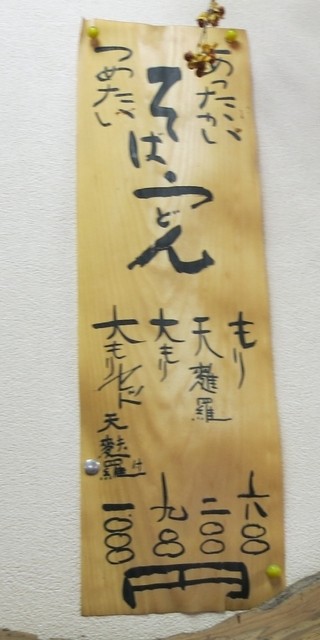 あったかい
そば・うどん
つめたい
もり 六〇〇
天麩羅 二〇〇
大もり 九〇〇
大もりセット 天麩羅付 一〇〇〇
円